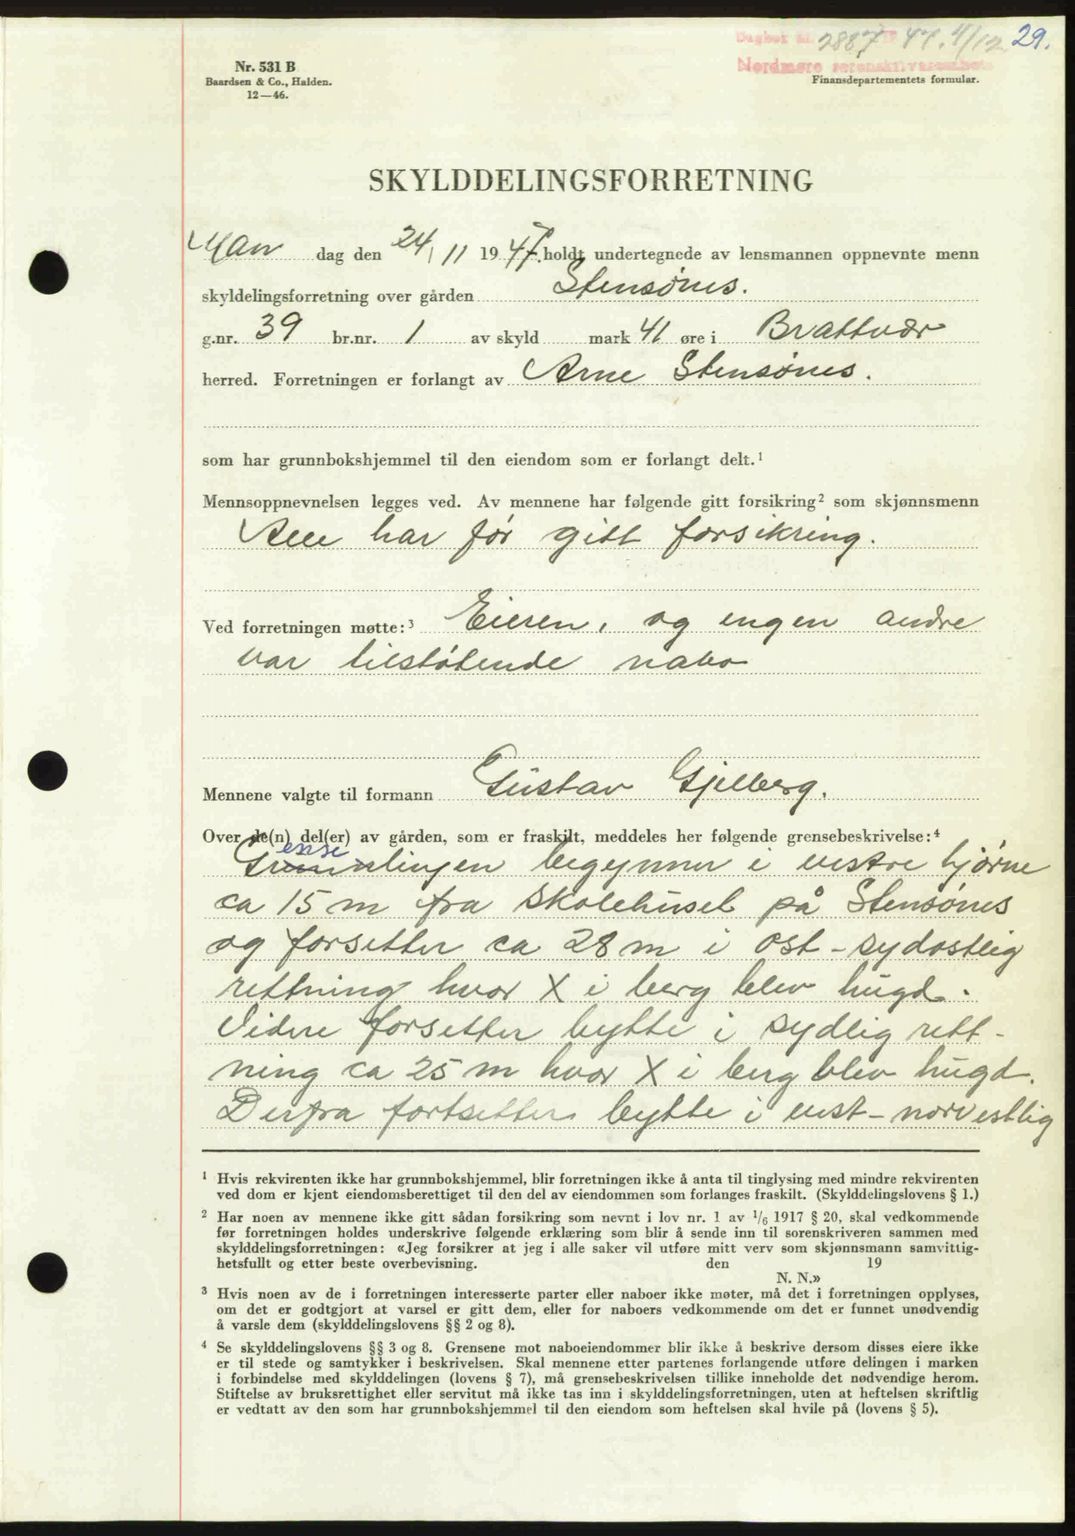 Dagbok nr. 2887 47. 4/12 29.
Nordmøre sorenskriverembete
Nr. 531 B
Baardsen & Co., Halden.
12—46.
Finansdepartementets formular.
SKYLDDELINGSFORRETNING
Man dag den 24/11 1947. holdt undertegnede av lensmannen oppnevnte menn
skyldelingsforretning over gården Stensønes.
g.nr. 39 br.nr. 1 av skyld mark 41 øre i Brattvær
herred. Forretningen er forlangt av Arne Stensønes.
som har grunnbokshjemmel til den eiendom som er forlangt delt.¹
Mennsoppnevnelsen legges ved. Av mennene har følgende gitt forsikring² som skjønnsmenn
Alle har før gitt forsikring.
Ved forretningen møtte:³ Eieren, og engen andre
var tilstøtende nabo
Mennene valgte til formann Gustav Gjelberg.
Over de(n) del(er) av gården, som er fraskilt, meddeles her følgende grensebeskrivelse:⁴
ense
begynner i vestre hjørne
ca 15 m fra skolehuset på Stensønes
og forsetter ca 28 m i ost-sydostlig
rettning hvor X i berg blev hugd.
Videre forsetter bytte i sydlig rett-
ning ca 25 m hvor X i berg blev hugd.
Derfra fortsetter bytte i vest-norvestlig
¹ Hvis rekvirenten ikke har grunnbokshjemmel, blir forretningen ikke å anta til tinglysing med mindre rekvirenten
ved dom er kjent eiendomsberettiget til den del av eiendommen som forlanges fraskilt. (Skylddelingslovens § 1.)
² Har noen av mennene ikke gitt sådan forsikring som nevnt i lov nr. 1 av 1/6 1917 § 20, skal vedkommende
før forretningen holdes underskrive følgende erklæring som blir å sende inn til sorenskriveren sammen med
skylddelingsforretningen: «Jeg forsikrer at jeg i alle saker vil utføre mitt verv som skjønnsmann samvittig-
hetsfullt og etter beste overbevisning. den 19
N. N.»
³ Hvis noen av de i forretningen interesserte parter eller naboer ikke møter, må det i forretningen opplyses,
om det er godtgjort at varsel er gitt dem, eller for naboers vedkommende om det er funnet unødvendig
å varsle dem (skylddelingslovens §§ 2 og 8).
⁴ Se skylddelingslovens §§ 3 og 8. Grensene mot naboeiendommer blir ikke å beskrive dersom disses eiere ikke
er til stede og samtykker i beskrivelsen. Skal mennene etter partenes forlangende utføre delingen i marken
i forbindelse med skylddelingen (lovens § 7), må grensebeskrivelsen tillike inneholde det nødvendige herom.
Stiftelse av bruksrettighet eller servitut må ikke tas inn i skylddelingsforretningen, uten at heftelsen skriftlig
er vedtatt av den som har grunnbokshjemmel til den eiendom som heftelsen skal hvile på (lovens § 5).